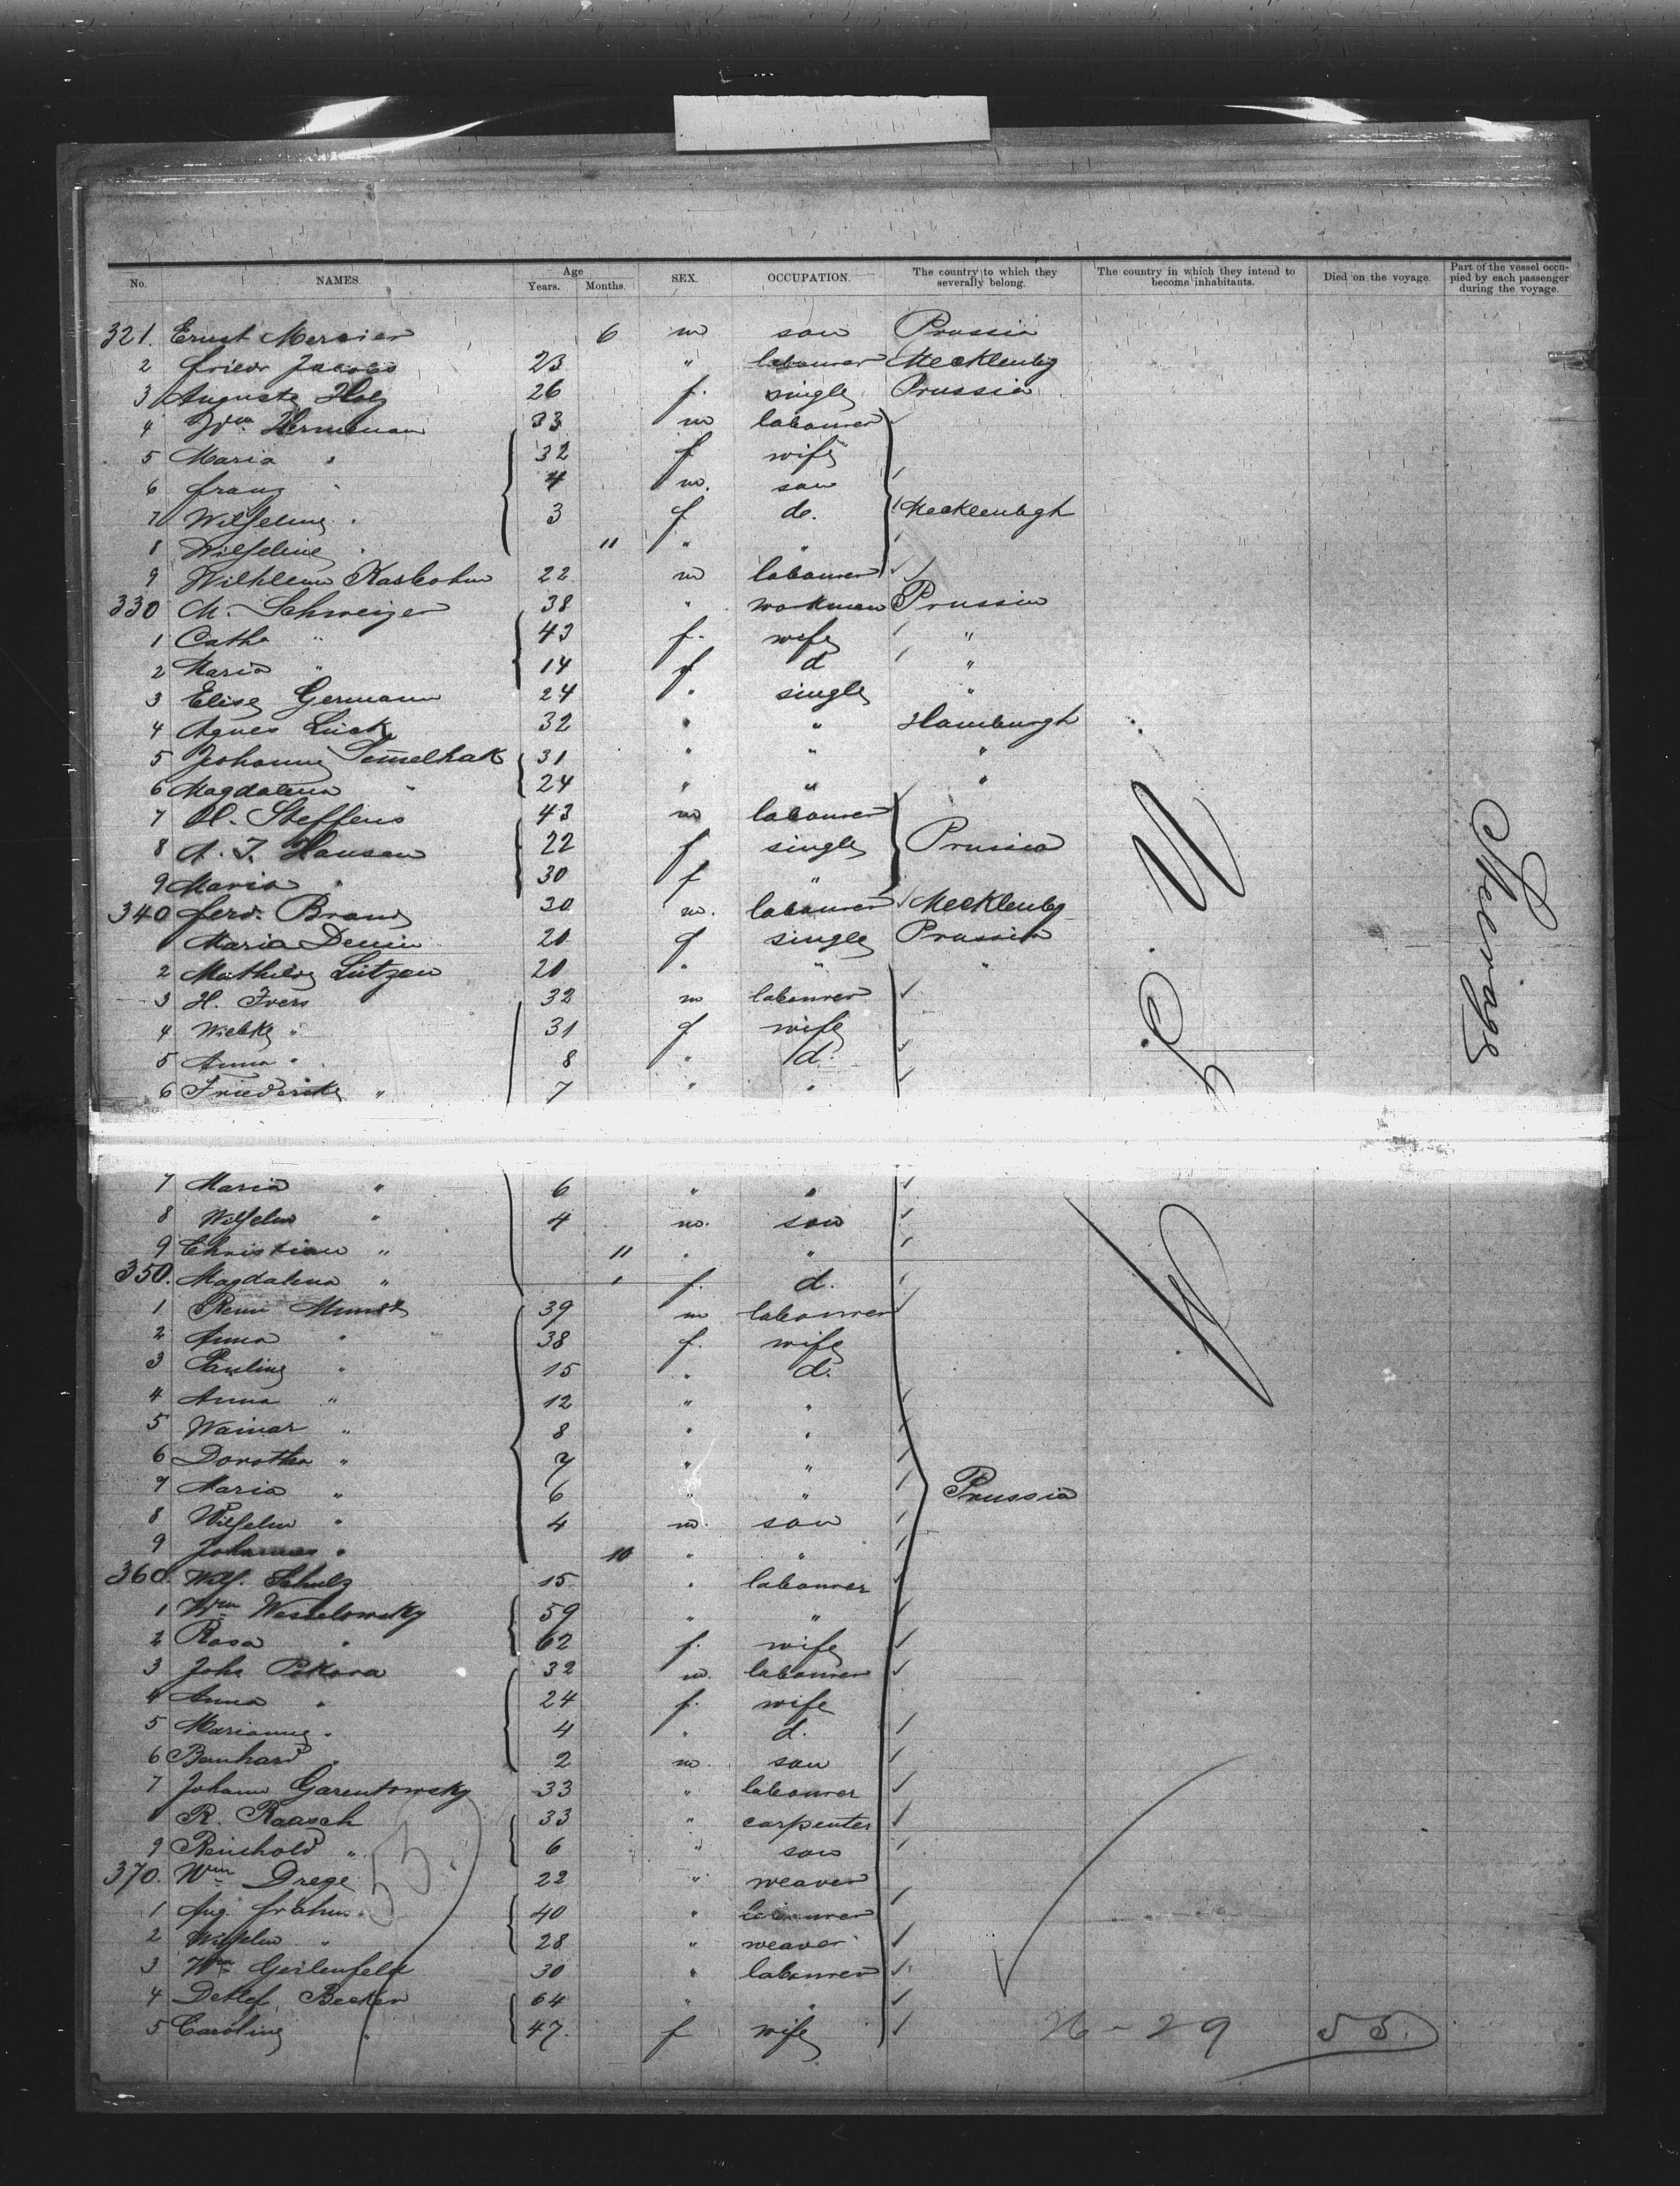 No. NAMES. Age Years. Months. SEX. OCCUPATION. The country to which they severally belong. The country in which they intend to become inhabitants. Died on the voyage. Part of the vessel occupied by each passenger during the voyage.
321. Ernst Mersier 6 m son Prussia
2 Friedr Jacobs 23 " labourer Mecklenbg
3 Auguste Holz 26 f. single Prussia
4 Wm. Hermenau 33 m labourer
5 Maria " 32 f wife
6 Franz " 4 m. son
7 Wilhelmg " 3 f do. Mecklenbgh
8 Wilheline " 11 " "
9 Wilhlem Kasbohm 22 m labourer
330 M. Schweizer 38 " workman Prussia
1 Catha " 43 f. wife "
2 Maria " 14 f d "
3 Elise Germann 24 " single "
4 Agnes Lück 32 " " Hamburgh
5 Johanne Semelhak 31 " " "
6 Magdalena " 24 " " "
7 H. Steffens 43 m labourer
8 A. T. Hansen 22 f single Prussia
9 Maria " 30 f "
340 Ferd. Brand 20 m. labourer Mecklenbg
1 Maria Demin 20 f single Prussia
2 Mathilde Lützen 20 " " "
3 H. Ivers 32 m labourer
4 Wiebke " 31 f wife
5 Anna " 8 " d.
6 Friederike " 7 " "
7 Maria " 6 " "
8 Wilhelm " 4 m. son
9 Christian " 11 " "
350. Magdalena " 1 f. d.
1 Remi Mundt 39 m labourer
2 Anna " 38 f. wife
3 Pauline " 15 " d.
4 Anna " 12 " "
5 Wainar " 8 " "
6 Dorothea " 7 " "
7 Maria " 6 " " Prussia
8 Wilhelm " 4 m. son
9 Johannes " 10 " "
360. Wilh. Schulz 15 " labourer
1 Wm Wesselowsky 59 " "
2 Rosa " 62 f. wife
3 Johs Pokora 32 m. labourer
4 Anna " 24 f. wife
5 Marianne " 4 " d.
6 Bernhard " 2 m. son
7 Johann Garentowsky 33 " labourer
R. Raasch 33 " carpenter
9 Reinhold " 6 " son
370. Wm Drege 22 " weaver
1 Aug. Frahm 40 " labourer
2 Wilhelm " 28 " weaver
3 Wm Geilenfeld 30 " labourer
4 Detlef Becker 64 " "
5 Caroline " 47. f wife
U. S. A.
Steerage
53.
26-29 55.